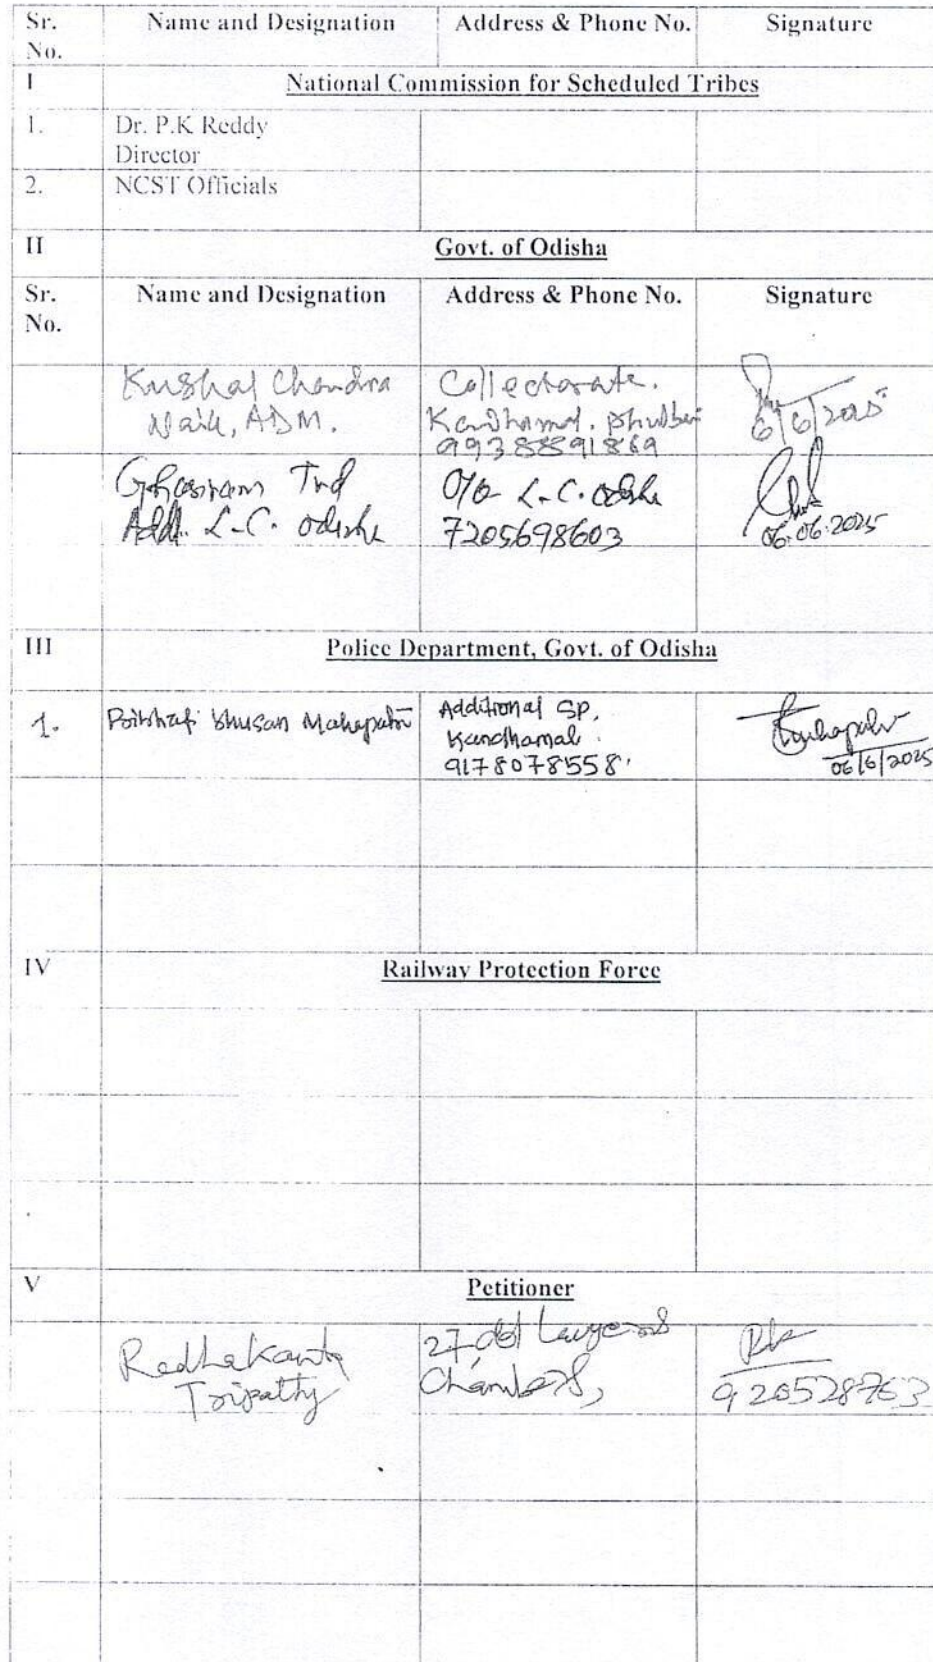 Sr. No. Name and Designation Address & Phone No. Signature
I National Commission for Scheduled Tribes
1. Dr. P.K Reddy
Director
2. NCST Officials
II Govt. of Odisha
Sr. No. Name and Designation Address & Phone No. Signature
Kushal Chandra Collectorate.
Naik, ADM. Kandhamal.
99388891869 6/6/2025
Addl. L.C. Odisha O/o L.C. Odisha
7205698603 06.06.2025
III Police Department, Govt. of Odisha
1. Bhusan Mahapatra Additional SP,
Kandhamal.
9178078558 06/6/2025
IV Railway Protection Force
V Petitioner
Radhakanta 27
Tripathy Chambers, 920528763